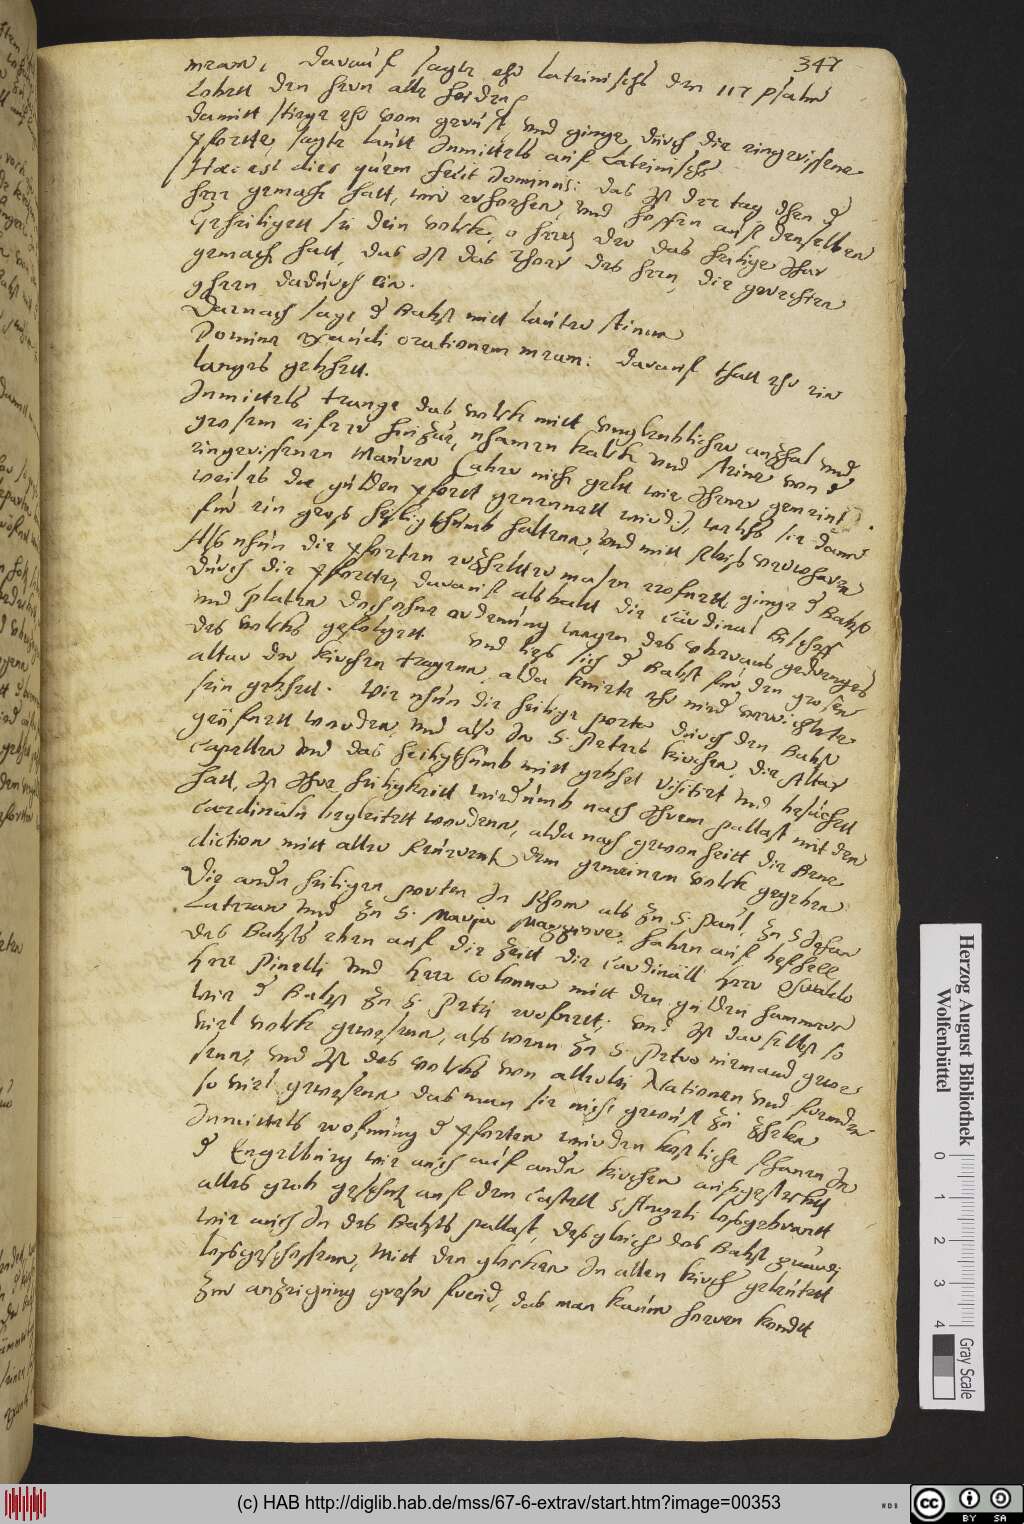 347
meam, darauf sagte ehr lateinischs den 117 psalm
Lobett den hern alle heiden
damitt stiege ehr vom gerüst, und ginge durch die eingerissene
pforte, sagte lautt Inmittels auf Lateinischs
Haec est dies quem fecit Dominus: das Ist der tag den d
herr gemacht hatt, wir erhorhen, und hoffen auf denselben
Geheiliget sei dein volck, o herr, der das heilige Jhar
gemacht hatt, das Ist das Thoer des hern, die gerechten
ghen dadurch ein.
Darnach sagt d Babst mitt lauter stimm
Domine exaudi orationem meam: darauf thatt ehr ein
langes gebhett.
Inmittels trange das volck mitt unglaublicher anzhal und
grosem eifer hinzu, nhamen kalck und steine von d
eingerissenen Mauren (aber nicht gelt wie Jhener gemeint
weil es die gülden pfortt genennett wird), welchs sie dann
für ein gros heiligthumb haltenn, und mitt fleis verwharen
Als nhun die pforten erzhelter masen eröfnett ginge d Babst
durch die pforte, darauf alsbalt die Cardinal Bischoff
und prelaten doch ohne ordenung wegen des uberaus gedrenges
des volcks gefolgett und lies sich d Babst für den grosen
altar der kirchen tragenn, alda kniete ehr und verrichtete
sein gebhett. Wie nhun die heilige porte durch den Babst
geöfnett worden, und also In S. Peters kirchen, die Altar
Capellen und das heiligthumb mitt gebhet visitiert und besuchett
hatt, Ist Ihre heiligkeitt wiederumb nach Ihrem pallast mit den
Cardinäln begleitett wordenn, alda nach gewonheitt die Bene
diction mitt aller [..] dem gemeinen volck gegeben
Die andn heiligen porten In Rhom als Zu S. Paul, Zu S Johan
Lateran und Zu S. Maria Maggiore, haben auf befhell
des Babsts eben auf die Zeitt die Cardinäll herr Osualdo
herr Pinelli und herr Colonna mitt den gülden hammern
wie d Babst Zu S. Petri eröfnett, und Ist daselbst so
viel volck gewesenn, als wenn Zu S. Petro niemand gewe
senn, und Ist des volcks von allerlei Nationen und frembden
so viel gewesenn das man sie nicht gewust Zu Zhelen
Inmittels eröfnung d pforten wurden kostliche fhanen In
d Engelburg wie auch auf andn kirchen ausgesteckett
alles grob geschutz auf dem Castell S Angeli losgebrantt
wie auch In des Babsts pallast, desgleich des Babst guardi
losgeschossenn, Mitt den glocken In allen kirch gelautett
Zur anzeigung grosr freud, das man kaum horen kondt
Herzog August Bibliothek
Wolfenbüttel
0 1 2 3 4
Gray Scale
(c) HAB http://diglib.hab.de/mss/67-6-extrav/start.htm?image=00353
WDB
BY SA